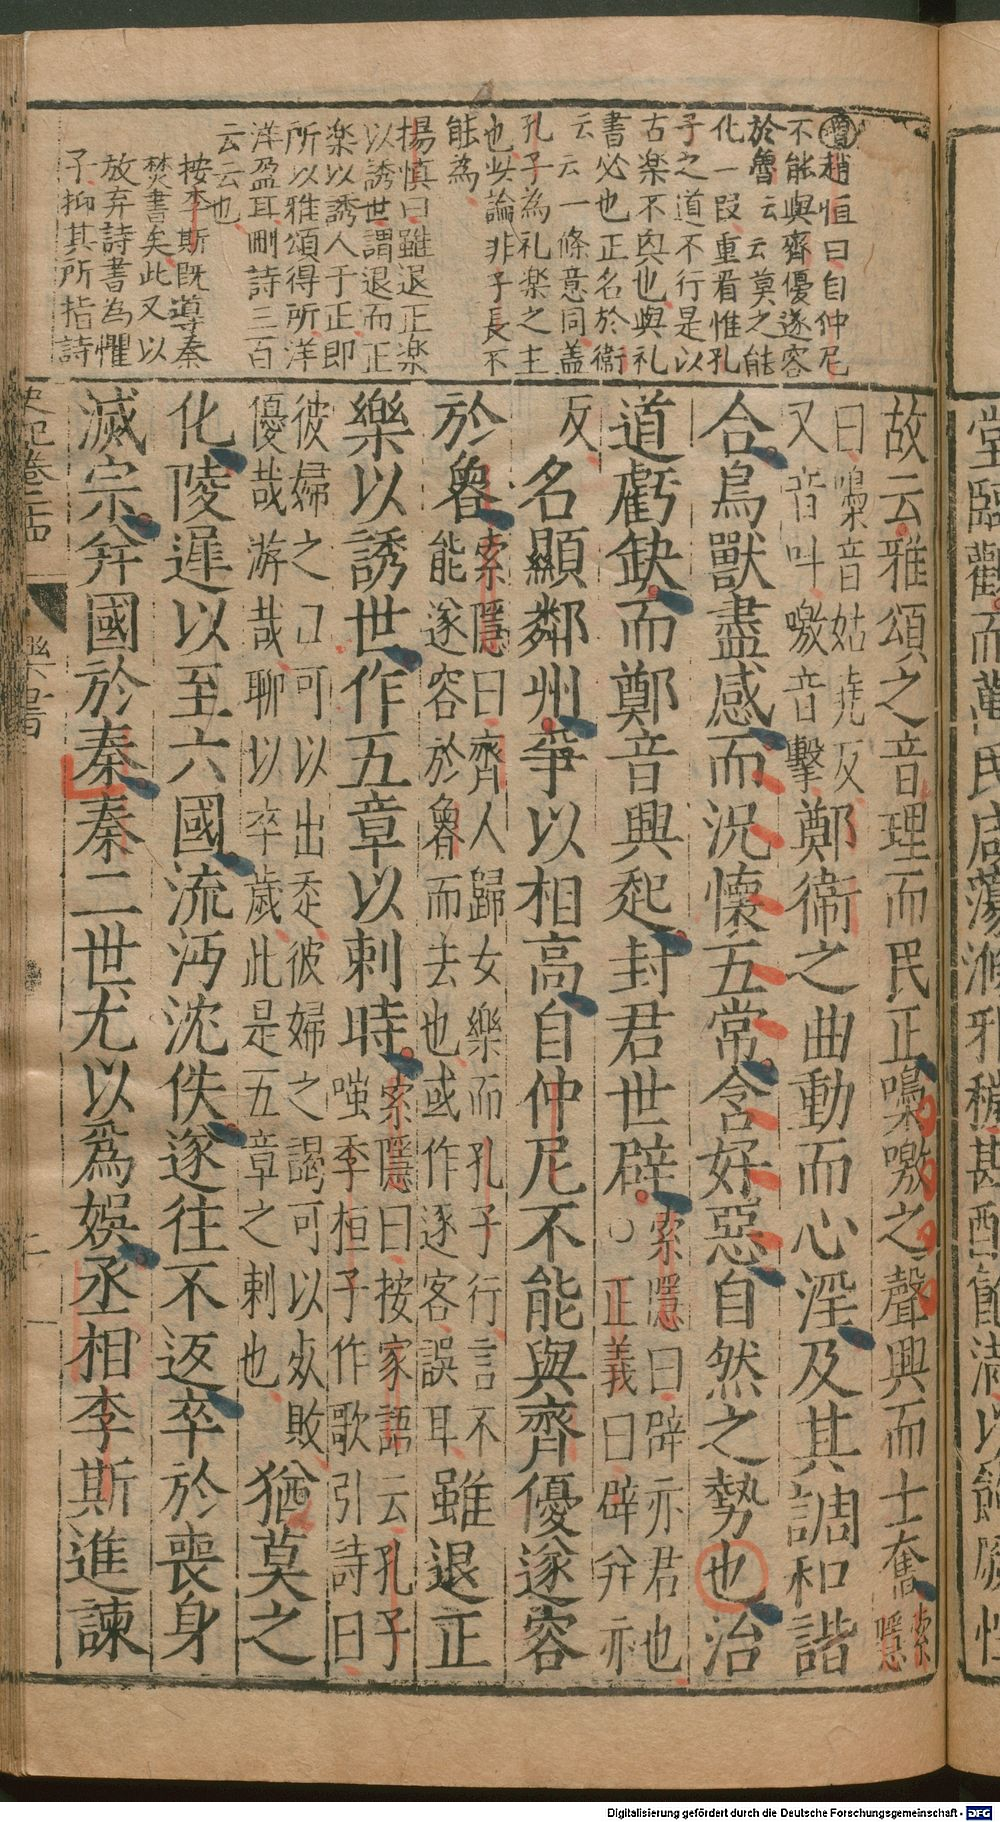 趙恒曰自仲尼
不能與齊優遂容
於魯云云莫之能
化一段重看惟孔
子之道不行是以
古楽不與也與礼
書必也正名於衛
云云一條意同盖
孔子為礼楽之主
也此論非子長不
能為
楊慎曰雖退正楽
以誘世謂退而正
楽以誘人于正即
所以雅頌得所洋
洋盈耳刪詩三百
云云也
按李斯既導秦
焚書矣此又以
放弃詩書為懼
子抑其所指詩
故云雅頌之音理而民正嘄噭之聲興而士奮索隱
曰嘄音姑堯反
又音叫噭音擊鄭衛之曲動而心淫及其調和諧
合鳥獸盡感而況懷五常含好惡自然之勢也治
道虧缺而鄭音興起封君世辟索隱曰辟亦君也
○正義曰辟并亦
反名顯鄰州爭以相高自仲尼不能與齊優遂容
於魯索隱曰齊人歸女樂而孔子行言不
能遂容於魯而去也或作逐客誤耳雖退正
樂以誘世作五章以刺時索隱曰按家語云孔子
嗤季桓子作歌引詩曰
彼婦之口可以出走彼婦之謁可以死敗
優哉游哉聊以卒歲此是五章之刺也猶莫之
化陵遲以至六國流沔沈佚遂往不返卒於喪身
滅宗并國於秦秦二世尤以爲娛丞相李斯進諫
史記卷二四
樂書
Digitalisierung gefördert durch die Deutsche Forschungsgemeinschaft - DFG